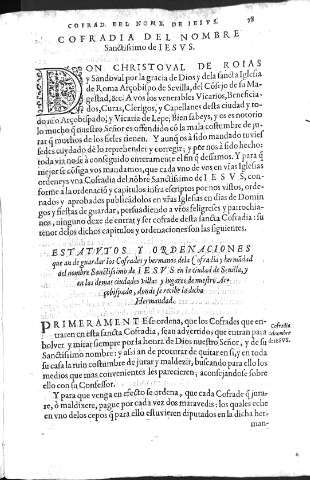 COFRAD. DEL NOMB. DE IESVS.
78
COFRADIA DEL NOMBRE
Sanctissimo de IESVS.
DON CHRISTOVAL DE ROIAS
y Sandoval por la gracia de Dios y dela sancta Iglesia
de Roma Arçobispo de Sevilla, del Cõsejo de su Ma-
gestad, &c. A vos los venerables Vicarios, Beneficia-
dos, Curas, Clerigos, y Capellanes desta ciudad y to-
do nro Arçobispado; y Vicaria de Lepe, Bien sabeys, y os es notorio
lo mucho q̃ nuestro Señor es offendido cõ la mala costumbre de ju-
rar q̃ muchos de los fieles tienen. Y aunq̃ os à sido mandado tuvies
sedes cuydado de lo reprehender y corregir; y por nos à sido hecho:
toda via no se à conseguido enteramente el fin q̃ desseamos. Y para q̃
mejor se cõsiga vos mandamos, que cada vno de vos en vr̃as Iglesias
ordeneys vna Cofradia del nõbre Sanctissimo de IESVS, con-
forme a la ordenació y capitulos infra escriptos por nos vistos, orde-
nados y aprobados publicãdolos en vr̃as Iglesias en dias de Domin
gos y fiestas de guardar, persuadiendo a vr̃os feligreses y parrochia-
nos, ninguno dexe de entrar y ser cofrade desta sancta Cofradia: su
tenor delos dichos capitulos y ordenaciones son las siguientes.
ESTATVTOS Y ORDENACIONES
que an de guardar los Cofrades y hermanos dela Cofradia y hermãdad
del nombre Sanctissimo de IESVS en la ciudad de Sevilla, y
en las demas ciudades villas y lugares de nuestro Ar-
çobispado, donde se recibe la dicha
Hermandad.
PRIMERAMENTE se ordena, que los Cofrades que en-
traren en esta sancta Cofradia, sean advertidos; que entran para
bolver y mirar siempre por la honra de Dios nuestro Señor, y de su
Sanctissimo nombre: y assi an de procurar de quitar en si, y en toda
su casa la ruin costumbre de jurar y maldezir, buscando para ello los
medios que mas convenientes les parescieren; aconsejandose sobre
ello con su Confessor.
Cofradia
del nombre
de IESVS.
Y para que venga en efecto se ordena, que cada Cofrade q̃ jura-
re, ò maldixere, pague por cada vez dos maravedis: los quales eche
en vno delos cepos q̃ para ello estuvieren diputados en la dicha her-
man-